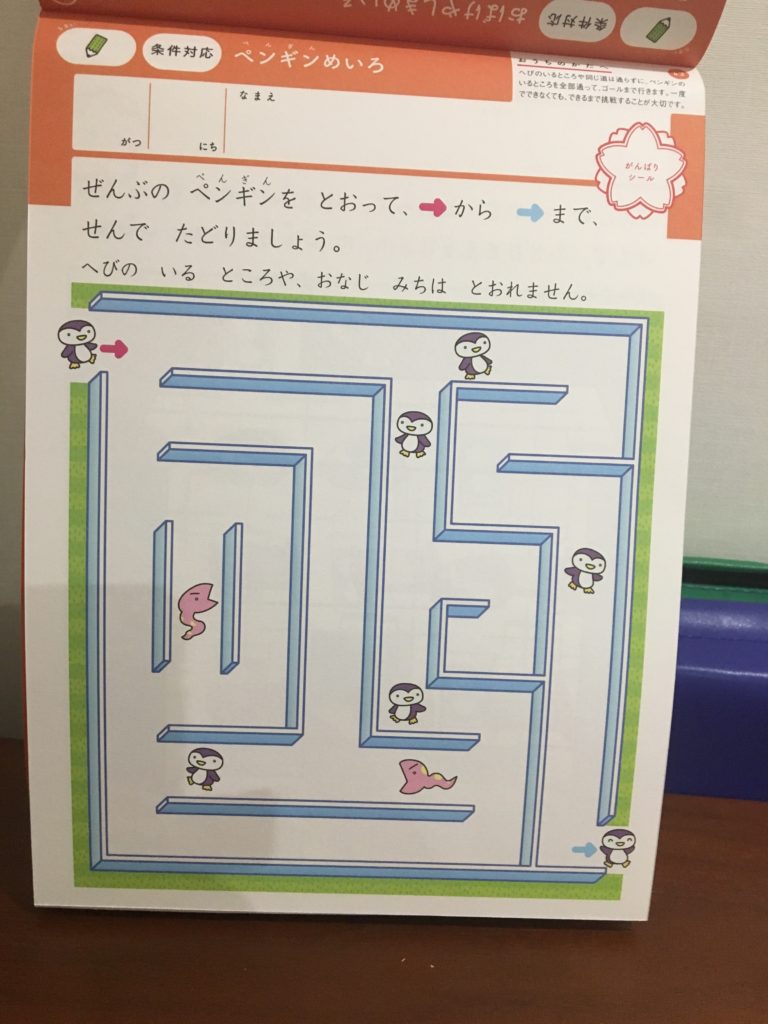 おばけやしきめいろ
条件対応
条件対応
ぺんぎん
ペンギンめいろ
おうちのかたへ
へびのいるところや同じ道は通らずに、ペンギンの
いるところを全部通って、ゴールまで行きます。一度
でできなくても、できるまで挑戦することが大切です。
なまえ
がつ
にち
がんばり
シール
ぺんぎん
ぜんぶの ペンギンを とおって、から まで、
せんで たどりましょう。
へびの いる ところや、おなじ みちは とおれません。